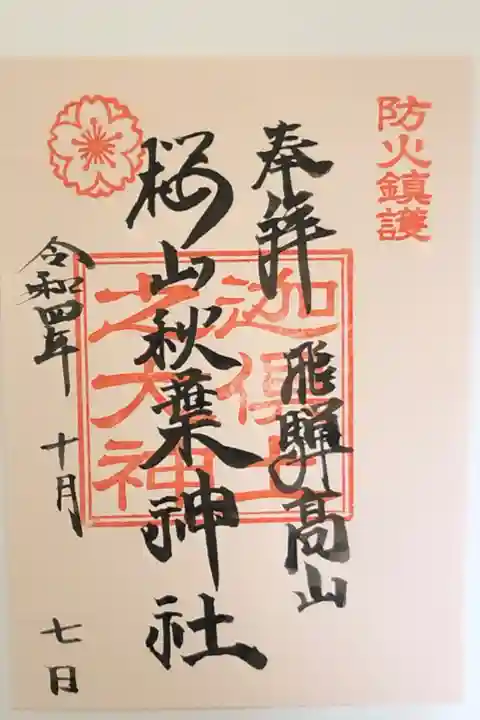 防火鎮護
奉拝
飛騨高山
桜山秋葉神社
令和四年
十月
七日